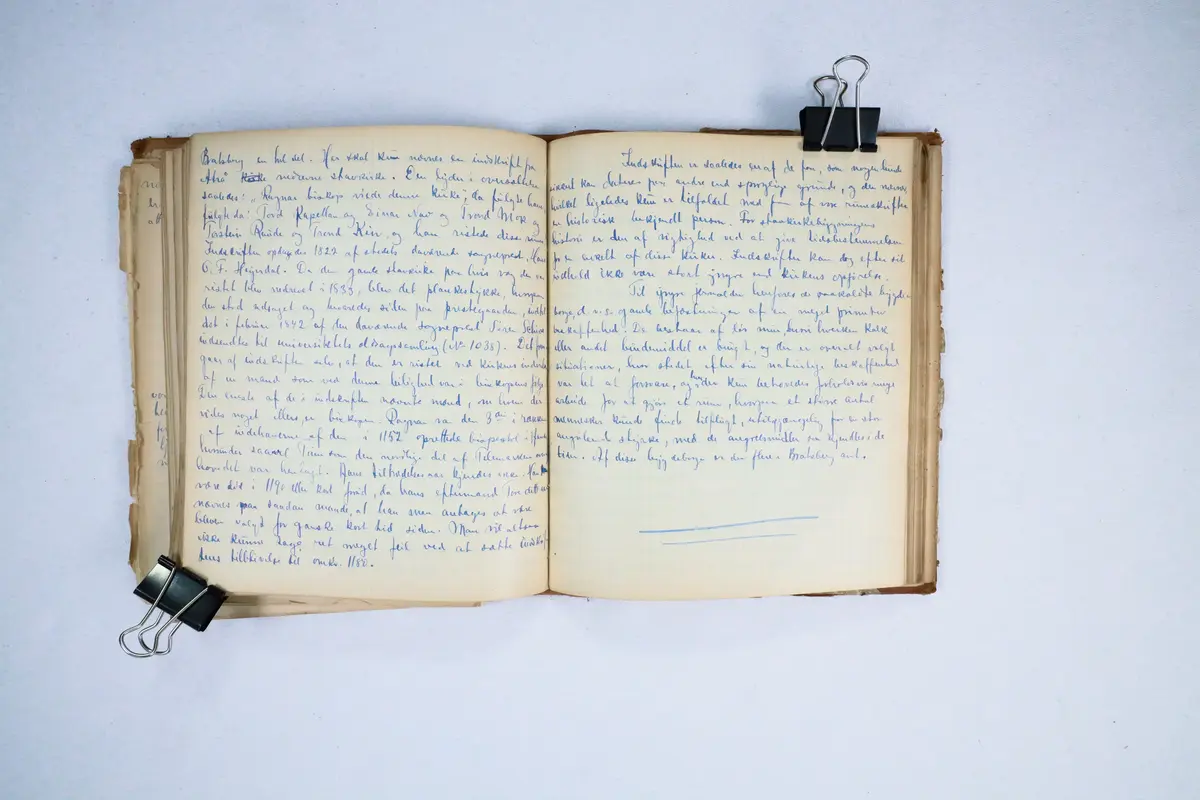 Bratsberg en hel del. Her skal kun nævnes en indskrift fra
Atrå nedrevne stavkirke. Den lyder i oversættelse
saaledes: "Ragnar biskop viede denne kirke, da fulgte ham
fylgjeda: Tord Kapellan og Einar Nav og Trond Mok og
Torstein Ruide og Trond Keir, og han ristede disse runer
Indskriften opdages 1822 af stedets daværende sogneprest, Hans
O. F. Heyerdal. Da den gamle stavkirke paa hvis væg den er
ristet blev nedrevet i 1833, blev det plankestykke, hvorpaa
den stod udsaget og henvredes siden paa prestegaarden, indtil
det i februar 1842 af den daværende sogneprest Søren Schive
indsendtes til universitetets oldsagsamling (No 1038). Det frem-
gaar af indskriften selv, at den er ristet ved kirkens indvielse
af en mand som ved denne leilighed var i biskopens følge.
Den eneste af de i indskriften nævnte mænd, om hvem der
vides noget ellers, er biskopen. Ragnar var den 3die i rækken
af indehaverne af den i 1152 oprettede bispestol i Hamar
hvorunder saavel Tinn som den øvrige del af Telemarken
var henlagt. Hans tiltrædelsesaar kjendes ikke. Han
være død i 1190 eller kort forud, da hans eftermand Tore dette aar
nævnes paa saadan maade, at han maa antages at være
bleven valgt for ganske kort tid siden. Man vil altsaa
ikke kunne tage ret meget feil ved at sætte indskrif-
tens tilblivelse til omkr. 1180.
Indskriften er saaledes en af de faa, som nogenlunde
sikkert kan dateres paa andre end sproglige grunde, og den nævner
hvilket ligeledes kun er tilfældet med faa af vore runeindskrifter
en historisk bekjendt person. For stavkirkebygningens
historie er den af vigtighed ved at give tidsbestemmelsen
for en enkelt af disse kirker. Indskriften kan dog efter sit
indhold ikke være stort yngre end kirkens opførelse.
Til yngre jernalder henføres de saakaldte bygde-
borge, d. v. s. gamle befæstninger af en meget primitiv
beskaffenhed. De bestaar af løs mur, hvori hverken kalk
eller andet bindemiddel er brugt, og der er overalt valgt
situationer, hvor stedet efter sin naturlige beskaffenhed
var let at forsvare, og hvor der kun behøvedes forholdsvis meget
arbeide for at gjøre et rum, hvorpaa et større antal
mennesker kunde finde tilflugt, utilgjængelig for en stor
angribende styrke, med de angrebsmidler som kjendtes i de
tider. Af disse bygdeborge er der flere i Bratsberg amt.